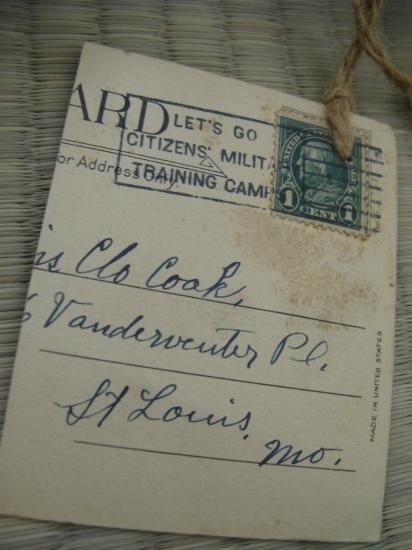 ARD
LET'S GO
CITIZENS' MILITA
TRAINING CAMP
or Address Only.
1 CENT 1
is Clo Cook,
6 Vanderventer Pl.
St Louis,
Mo.
MADE IN UNITED STATES